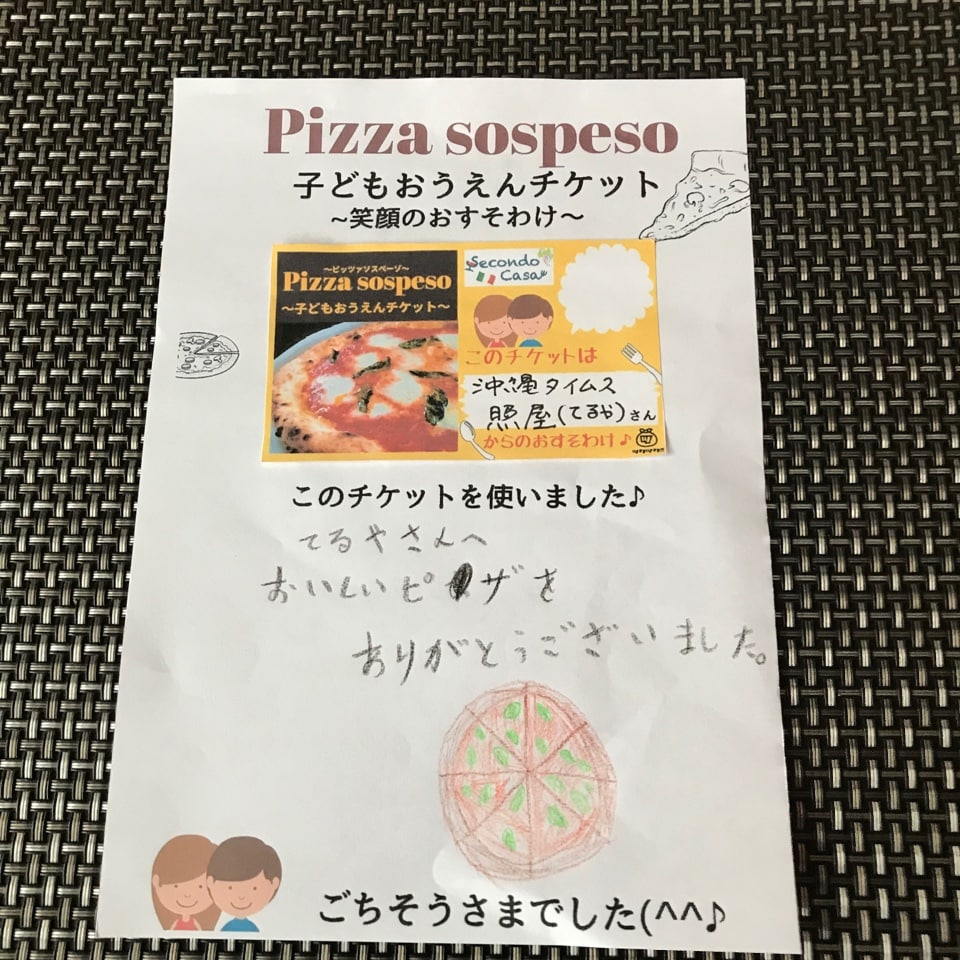 Pizza sospeso
子どもおうえんチケット
~笑顔のおすそわけ~
~ピッツァソスペーゾ~
Pizza sospeso
~子どもおうえんチケット~
Secondo
Casa
このチケットは
沖縄タイムス
照屋(てるや)さん
からのおすそわけ♪
このチケットを使いました♪
てるやさんへ
おいしいピザを
ありがとうございました。
ごちそうさまでした(^^♪